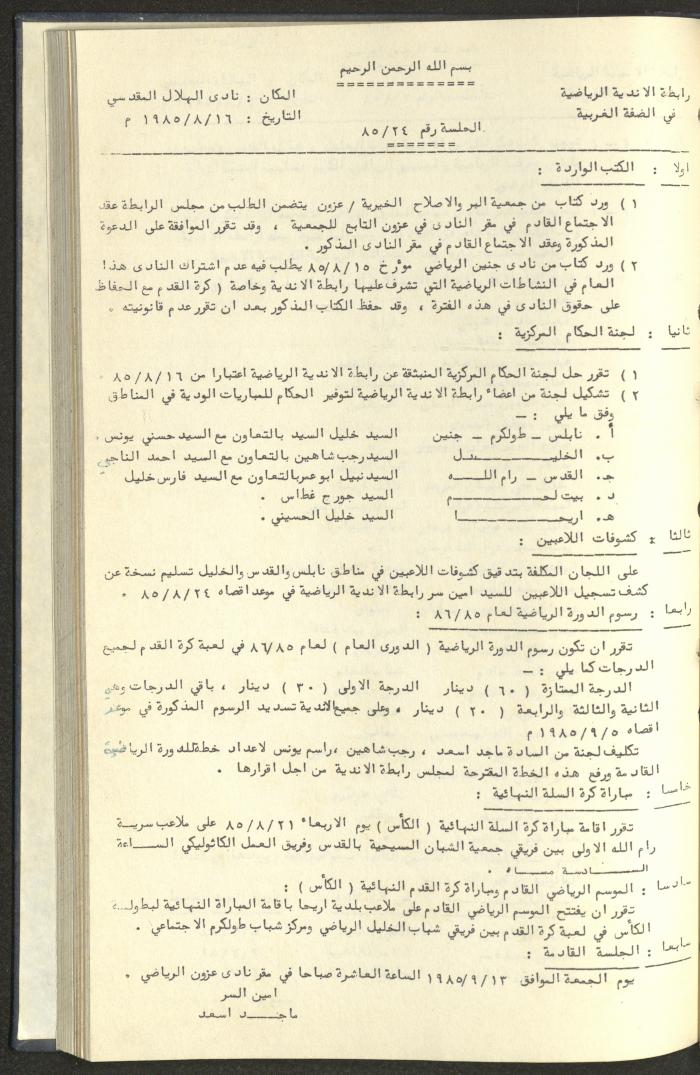 بسم الله الرحمن الرحيم
==============
رابطة الاندية الرياضية
في الضفة الغربية
المكان : نادى الهلال المقدسي
التاريخ : ١٩٨٥/٨/١٦ م
الجلسة رقم ٨٥/٢٤
=======
اولا : الكتب الواردة :
١ ) ورد كتاب من جمعية البر والاصلاح الخيرية / عزون يتضمن الطلب من مجلس الرابطة عقد
الاجتماع القادم في مقر النادى في عزون التابع للجمعية ، وقد تقرر الموافقة على الدعوة
المذكورة وعقد الاجتماع القادم في مقر النادى المذكور .
٢ ) ورد كتاب من نادى جنين الرياضي مؤرخ ٨٥/٨/١٥ يطلب فيه عدم اشتراك النادى هذا
العام في النشاطات الرياضية التي تشرف عليها رابطة الاندية وخاصة ( كرة القدم مع الحفاظ
على حقوق النادى في هذه الفترة ، وقد حفظ الكتاب المذكور بعد ان تقرر عدم قانونيته .
ثانيا : لجنة الحكام المركزية :
١ ) تقرر حل لجنة الحكام المركزية المنبثقة عن رابطة الاندية الرياضية اعتبارا من ٨٥/٨/١٦ .
٢ ) تشكيل لجنة من اعضاء رابطة الاندية الرياضية لتوفير الحكام للمباريات الودية في المناطق
وفق ما يلي : ـ
أ . نابلس ـ طولكرم ـ جنين السيد خليل السيد بالتعاون مع السيد حسني يونس .
ب. الخليـــــــل السيد رجب شاهين بالتعاون مع السيد احمد الناجي
جـ. القدس ـ رام اللـــه السيد نبيل ابو عمر بالتعاون مع السيد فارس خليل
د . بيت لحـــــــم السيد جورج غطاس .
هـ. اريحـــــــا السيد خليل الحسيني .
ثالثا : كشوفات اللاعبين :
على اللجان المكلفة بتدقيق كشوفات اللاعبين في مناطق نابلس والقدس والخليل تسليم نسخة عن
كشف تسجيل اللاعبين للسيد امين سر رابطة الاندية الرياضية في موعد اقصاه ٨٥/٨/٢٤ .
رابعا : رسوم الدورة الرياضية لعام ٨٦/٨٥ :
تقرر ان تكون رسوم الدورة الرياضية ( الدورى العام ) لعام ٨٦/٨٥ في لعبة كرة القدم لجميع
الدرجات كما يلي : ـ
الدرجة الممتازة ( ٦٠ ) دينار الدرجة الاولى ( ٣٠ ) دينار ، باقي الدرجات وهي
الثانية والثالثة والرابعة ( ٢٠ ) دينار ، وعلى جميع الاندية تسديد الرسوم المذكورة في موعد
اقصاه ١٩٨٥/٩/٥ م
تكليف لجنة من السادة ماجد اسعد ، رجب شاهين ، راسم يونس لاعداد خطة للدورة الرياضية
القادمة ورفع هذه الخطة المقترحة لمجلس رابطة الاندية من اجل اقرارها .
خامسا : مباراة كرة السلة النهائية :
تقرر اقامة مباراة كرة السلة النهائية ( الكأس ) يوم الاربعاء ٨٥/٨/٢١ على ملاعب سريـة
رام الله الاولى بين فريقي جمعية الشبان المسيحية بالقدس وفريق العمل الكاثوليكي الســـاعة
الســـادسة مســـاء .
سادسا : الموسم الرياضي القادم ومباراة كرة القدم النهائية ( الكأس ) :
تقرر ان يفتتح الموسم الرياضي القادم على ملاعب بلدية اريحا باقامة المباراة النهائية لبطولـة
الكأس في لعبة كرة القدم بين فريقي شباب الخليل الرياضي ومركز شباب طولكرم الاجتماعي .
سابعا : الجلسة القادمة :
يوم الجمعة الموافق ١٩٨٥/٩/١٣ الساعة العاشرة صباحا في مقر نادى عزون الرياضي .
امين السر
ماجـــد اسعد